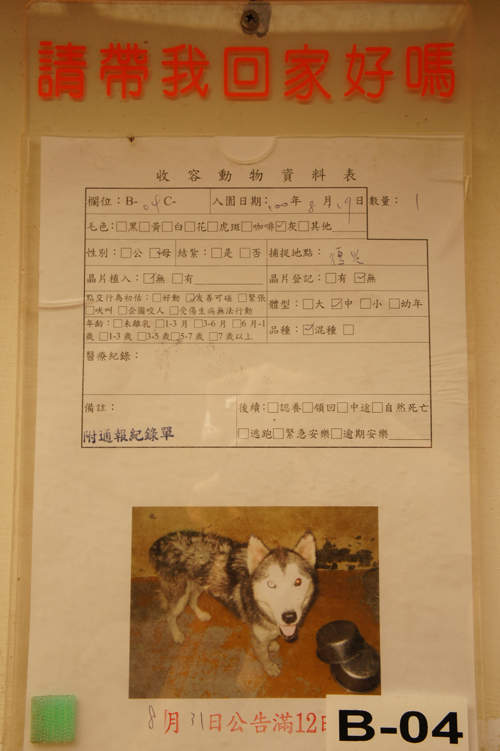 請帶我回家好嗎
收容動物資料表
欄位：B-04 C- 入園日期:100年8月19日 數量：1
毛色:□黑□黃□白□花□虎斑□咖啡☑灰□其他
性別：□公☑母 結紮：□是□否 捕捉地點：
晶片植入：☑無□有 晶片登記：□有☑無
點交行為初估：□好動☑友善可碰□緊張
□吠叫□企圖咬人□受傷生病無法行動
體型：□大☑中□小□幼年
年齡：□未離乳□1-3月□3-6月□6月-1
歲□1-3歲□3-5歲□5-7歲□7歲以上
品種：☑混種□
醫療紀錄：
備註：
附通報紀錄單
後續：□認養□領回□中途□自然死亡
□逃跑□緊急安樂□逾期安樂
8月31日公告滿12日
B-04